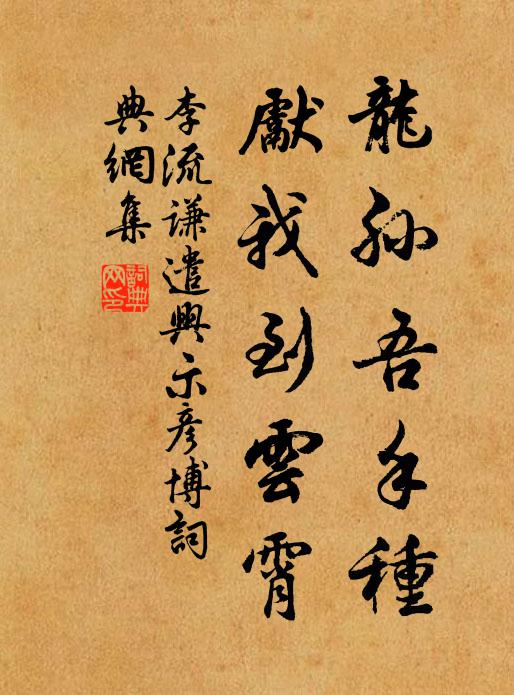 龍孫吾手種
獻我到雲霄
李流謙遣興示彥博詞
典網集
詞典網印